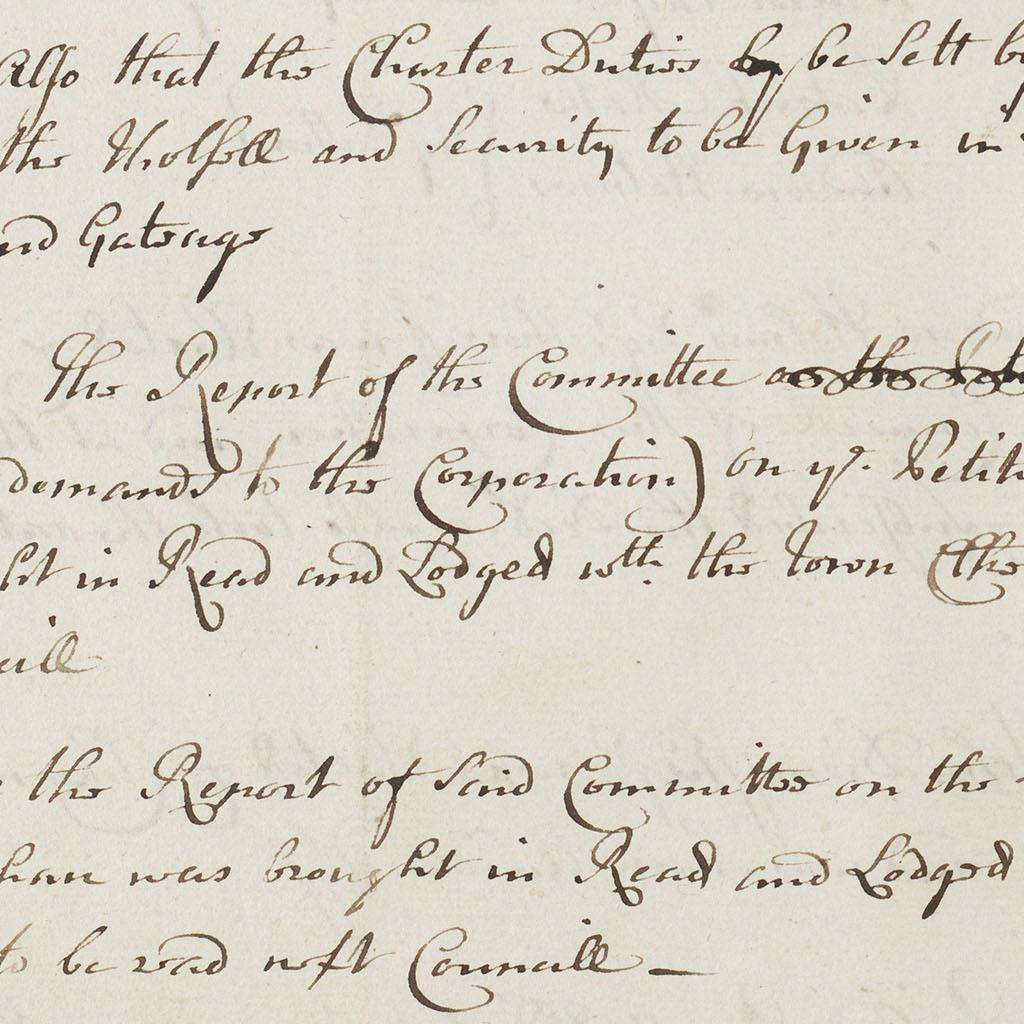 Also that the Charter Duties by be Sett b
the Tholsell and Security to be Given in
nd Gateage
The Report of the Committee on the Pet
demands to the Corporation) on ye. Petit
ht in Read and Lodged wth. the Town Cl
cill
the Report of Said Committee on the
han was brought in Read and Lodged
to be read next Councill —